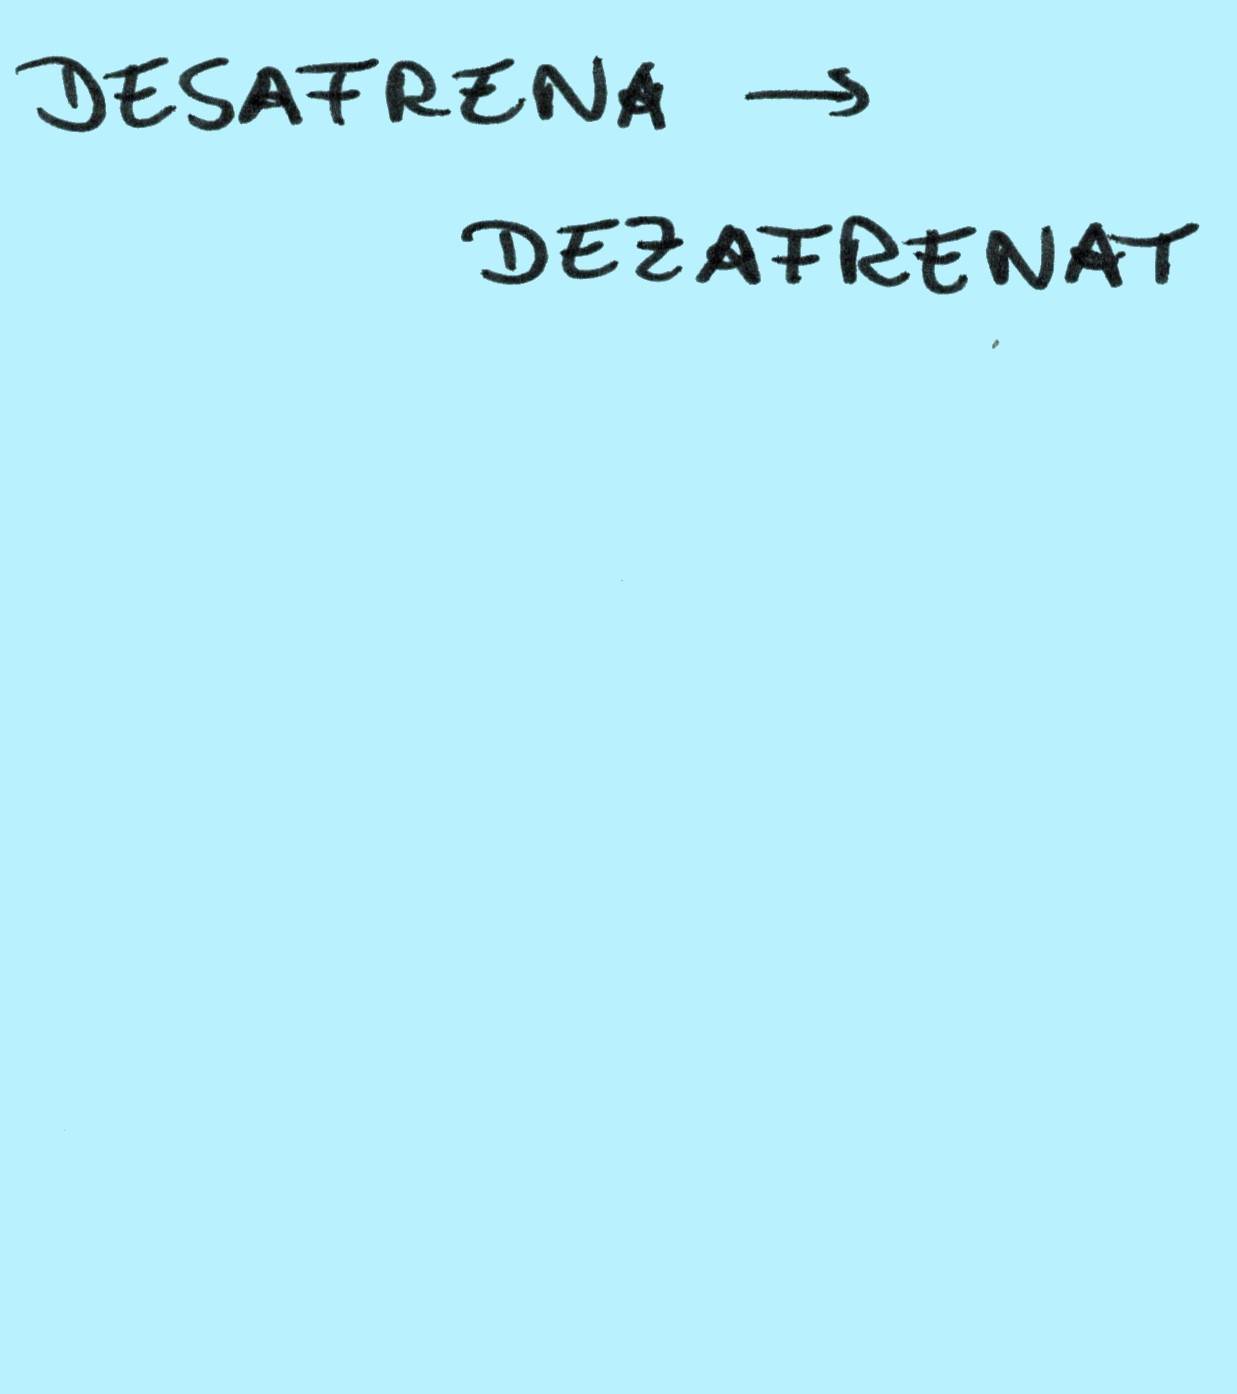 DESAFRENA →
DEZAFRENAT